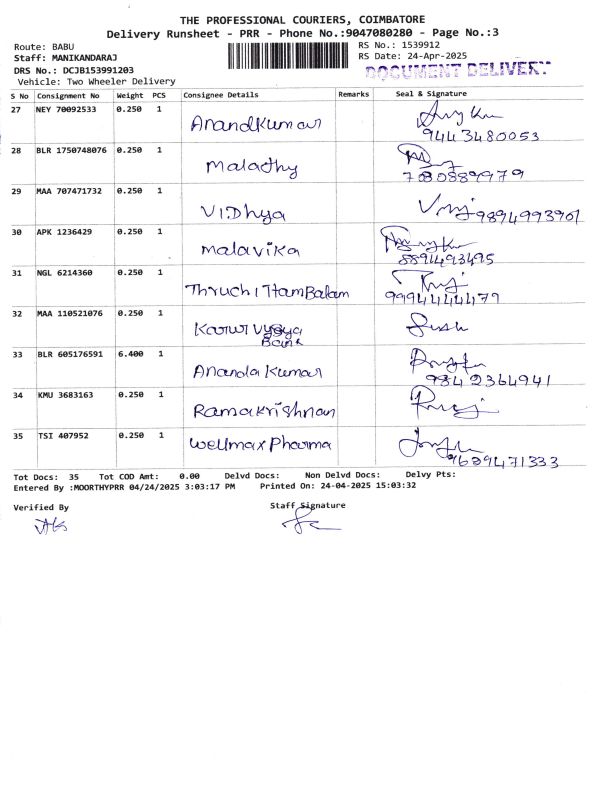 THE PROFESSIONAL COURIERS, COIMBATORE
Delivery Runsheet - PRR - Phone No.:9047080280 - Page No.:3
Route: BABU
RS No.: 1539912
Staff: MANIKANDARAJ
RS Date: 24-Apr-2025
DRS No.: DCJB153991203
DOCUMENT DELIVERY
Vehicle: Two Wheeler Delivery
S No Consignment No Weight PCS Consignee Details Remarks Seal & Signature
27 NEY 70092533 0.250 1 Anandkumar
9443480053
28 BLR 1750748076 0.250 1 Malathy
7080889979
29 MAA 707471732 0.250 1 VIDhya 9894993901
30 APK 1236429 0.250 1 Malavika
8891493495
31 NGL 6214360 0.250 1 ThruchITTamBalam
9994444479
32 MAA 110521076 0.250 1 Karur Vysya
Bank
33 BLR 605176591 6.400 1 Ananda Kumar
9842364941
34 KMU 3683163 0.250 1 Ramakrishnan
35 TSI 407952 0.250 1 Wellmax Pharma
9689471333
Tot Docs: 35 Tot COD Amt: 0.00 Delvd Docs: Non Delvd Docs: Delvy Pts:
Entered By :MOORTHYPRR 04/24/2025 3:03:17 PM Printed On: 24-04-2025 15:03:32
Verified By Staff Signature